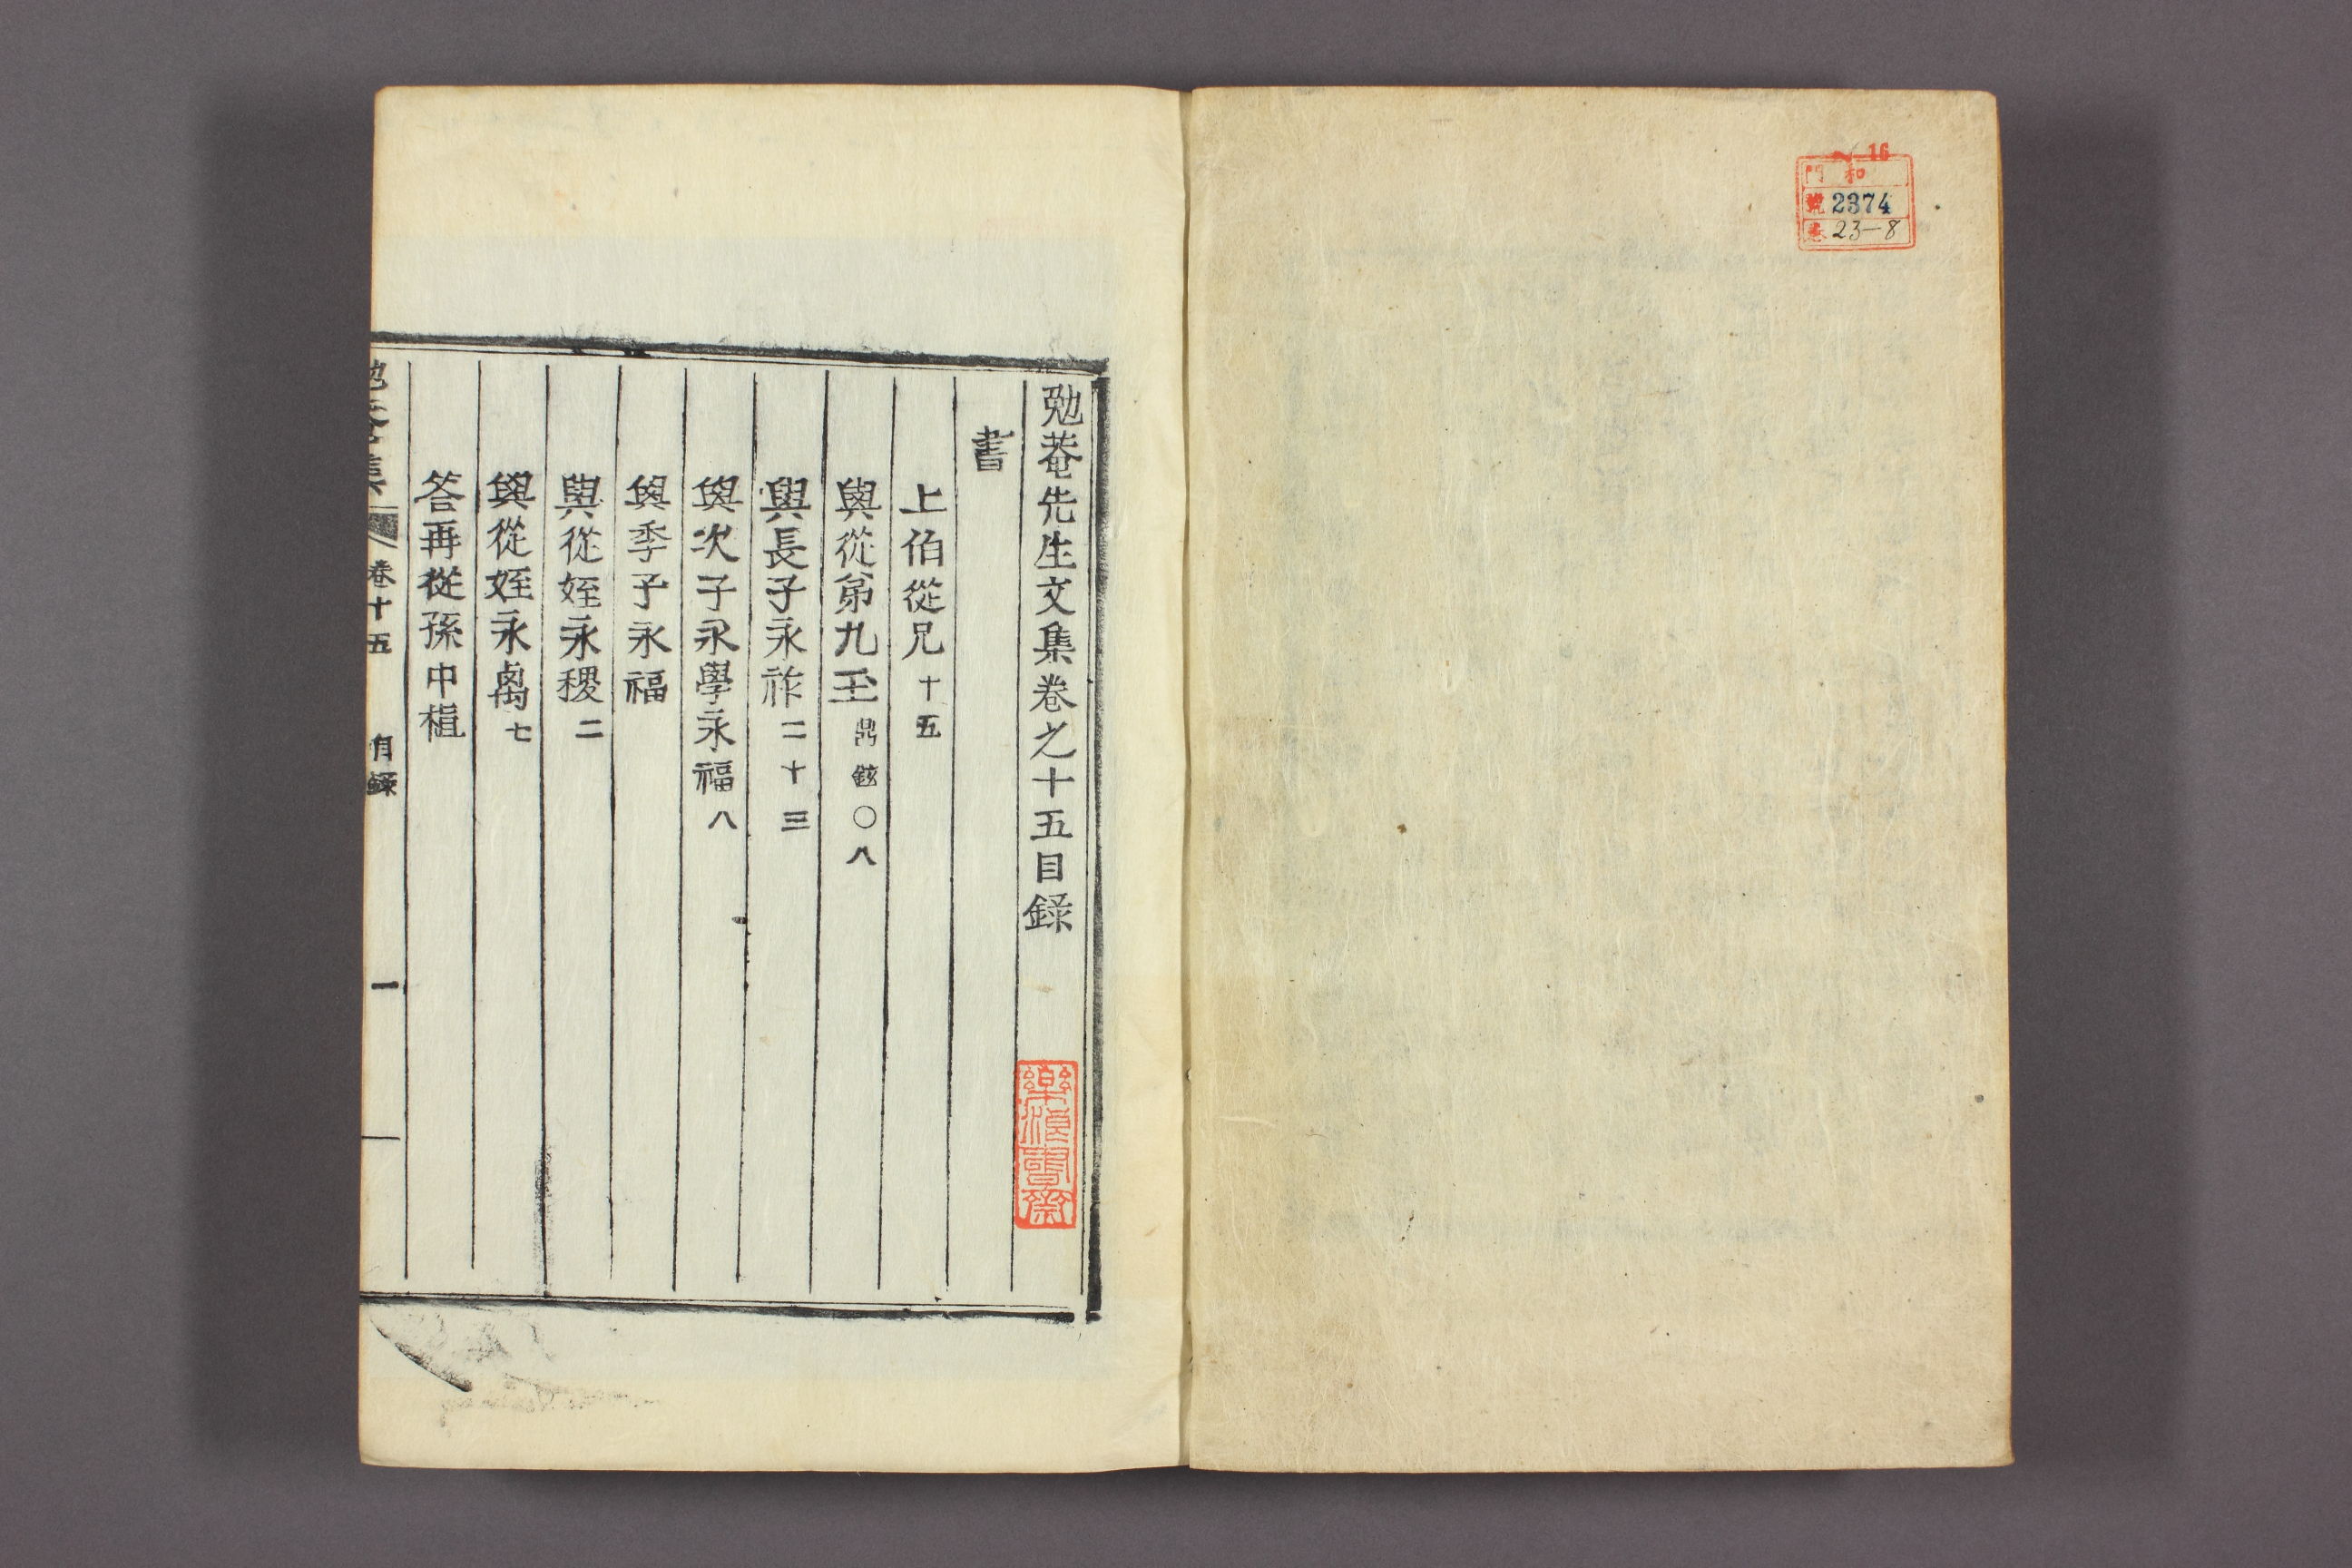 16
和門
號2374
卷23-8
勉菴先生文集卷之十五目録
書
上伯從兄十五
與從弟九玉鼎鉉○八
與長子永祚二十三
與次子永學永福八
與季子永福
與從姪永稷二
與從姪永卨七
答再從孫中植
勉菴集 卷十五 目錄 一